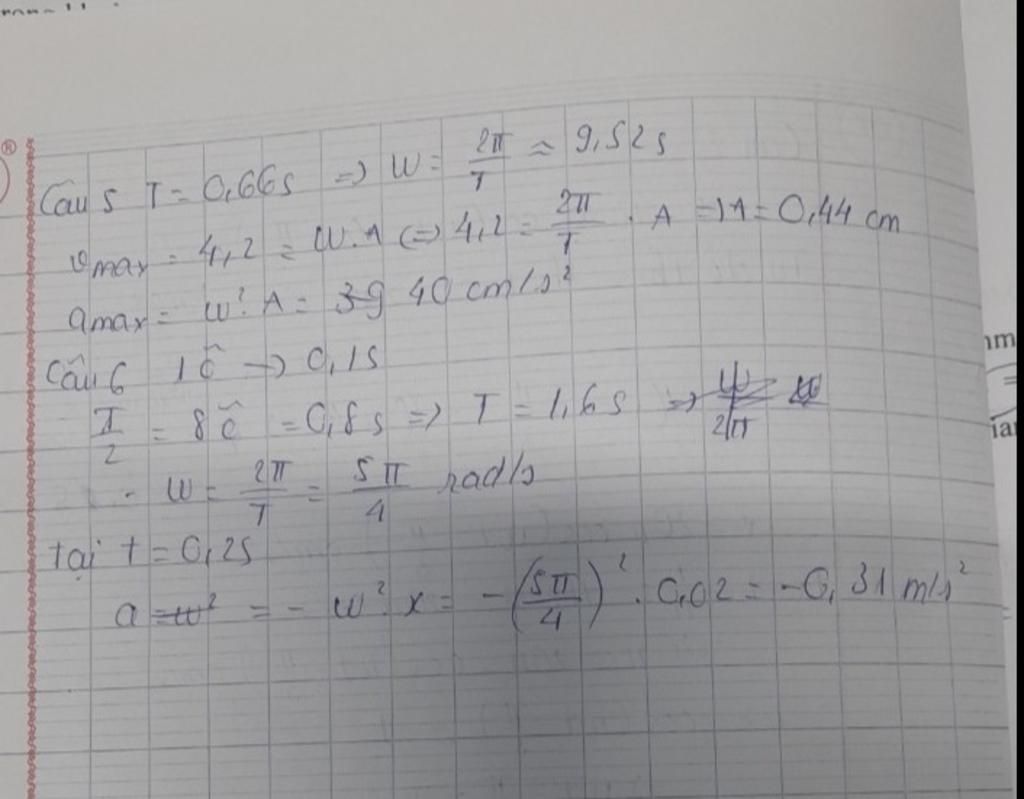 Câu 5 T = 0,66s => W = 2π/T ≈ 9,52s
vmax = 4,2 = W.A <=> 4,2 = 2π/T . A => A = 0,44 cm
amax = W². A = 39 40 cm/s²
Câu 6 1 ô -> 0,1s
T/2 = 8 ô = 0,8s => T = 1,6s =>
- W = 2π/T = 5π/4 rad/s
tại t = 0,2s
a = w² = - w². x = -(5π/4)² . 0,02 = -0,31 m/s²